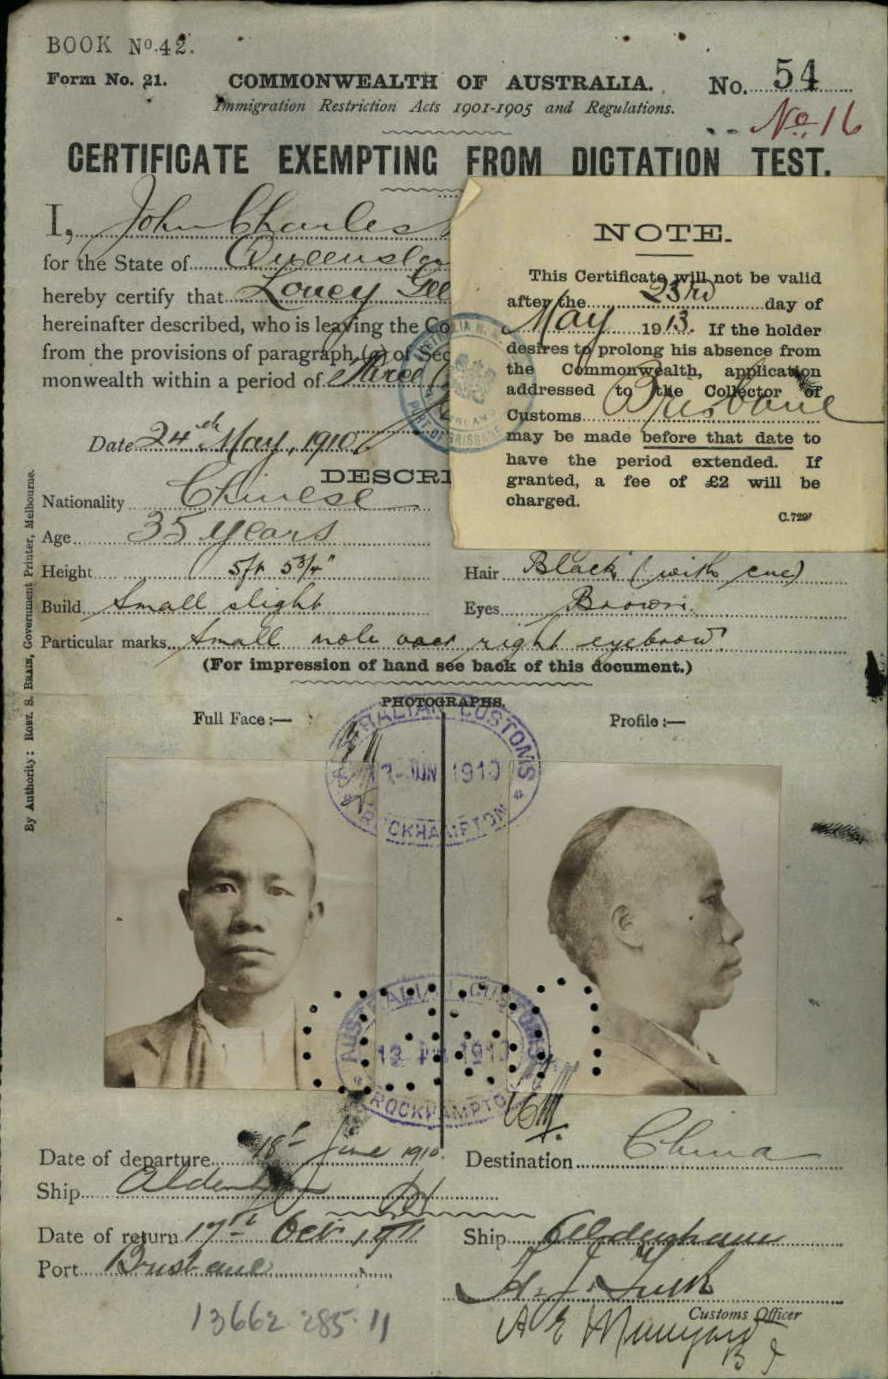 BOOK No.42.
Form No. 21. COMMONWEALTH OF AUSTRALIA. No. 54
Immigration Restriction Acts 1901-1905 and Regulations.
No. 16
CERTIFICATE EXEMPTING FROM DICTATION TEST.
I, John Charles
for the State of Queenslan
hereby certify that Gee
hereinafter described, who is leaving the Co
from the provisions of paragraph (a) of Sec
monwealth within a period of three
Date 24th May, 1910
NOTE.
This Certificate will not be valid
after the 23rd day of
May 1913. If the holder
desires to prolong his absence from
the Commonwealth, application
addressed to the Collector of
Customs Brisbane
may be made before that date to
have the period extended. If
granted, a fee of £2 will be
charged.
C.7297
DESCRI
Nationality Chinese
Age 35 years
Height 5ft 5¾"
Hair Black (with cue)
Build Small slight
Eyes Brown.
Particular marks Small mole over right eyebrow.
(For impression of hand see back of this document.)
PHOTOGRAPHS.
Full Face :— Profile :—
AUSTRALIAN CUSTOMS
13 JUN 1910
ROCKHAMPTON
AUSTRALIAN CUSTOMS
13 JUN 1910
ROCKHAMPTON
Date of departure 18th June 1910. Destination China
Ship Aldenham
Date of return 17th Oct 1911 Ship Aldenham
Port Brisbane
Customs Officer
13662 285.11
By Authority: ROBT. S. BRAIN, Government Printer, Melbourne.